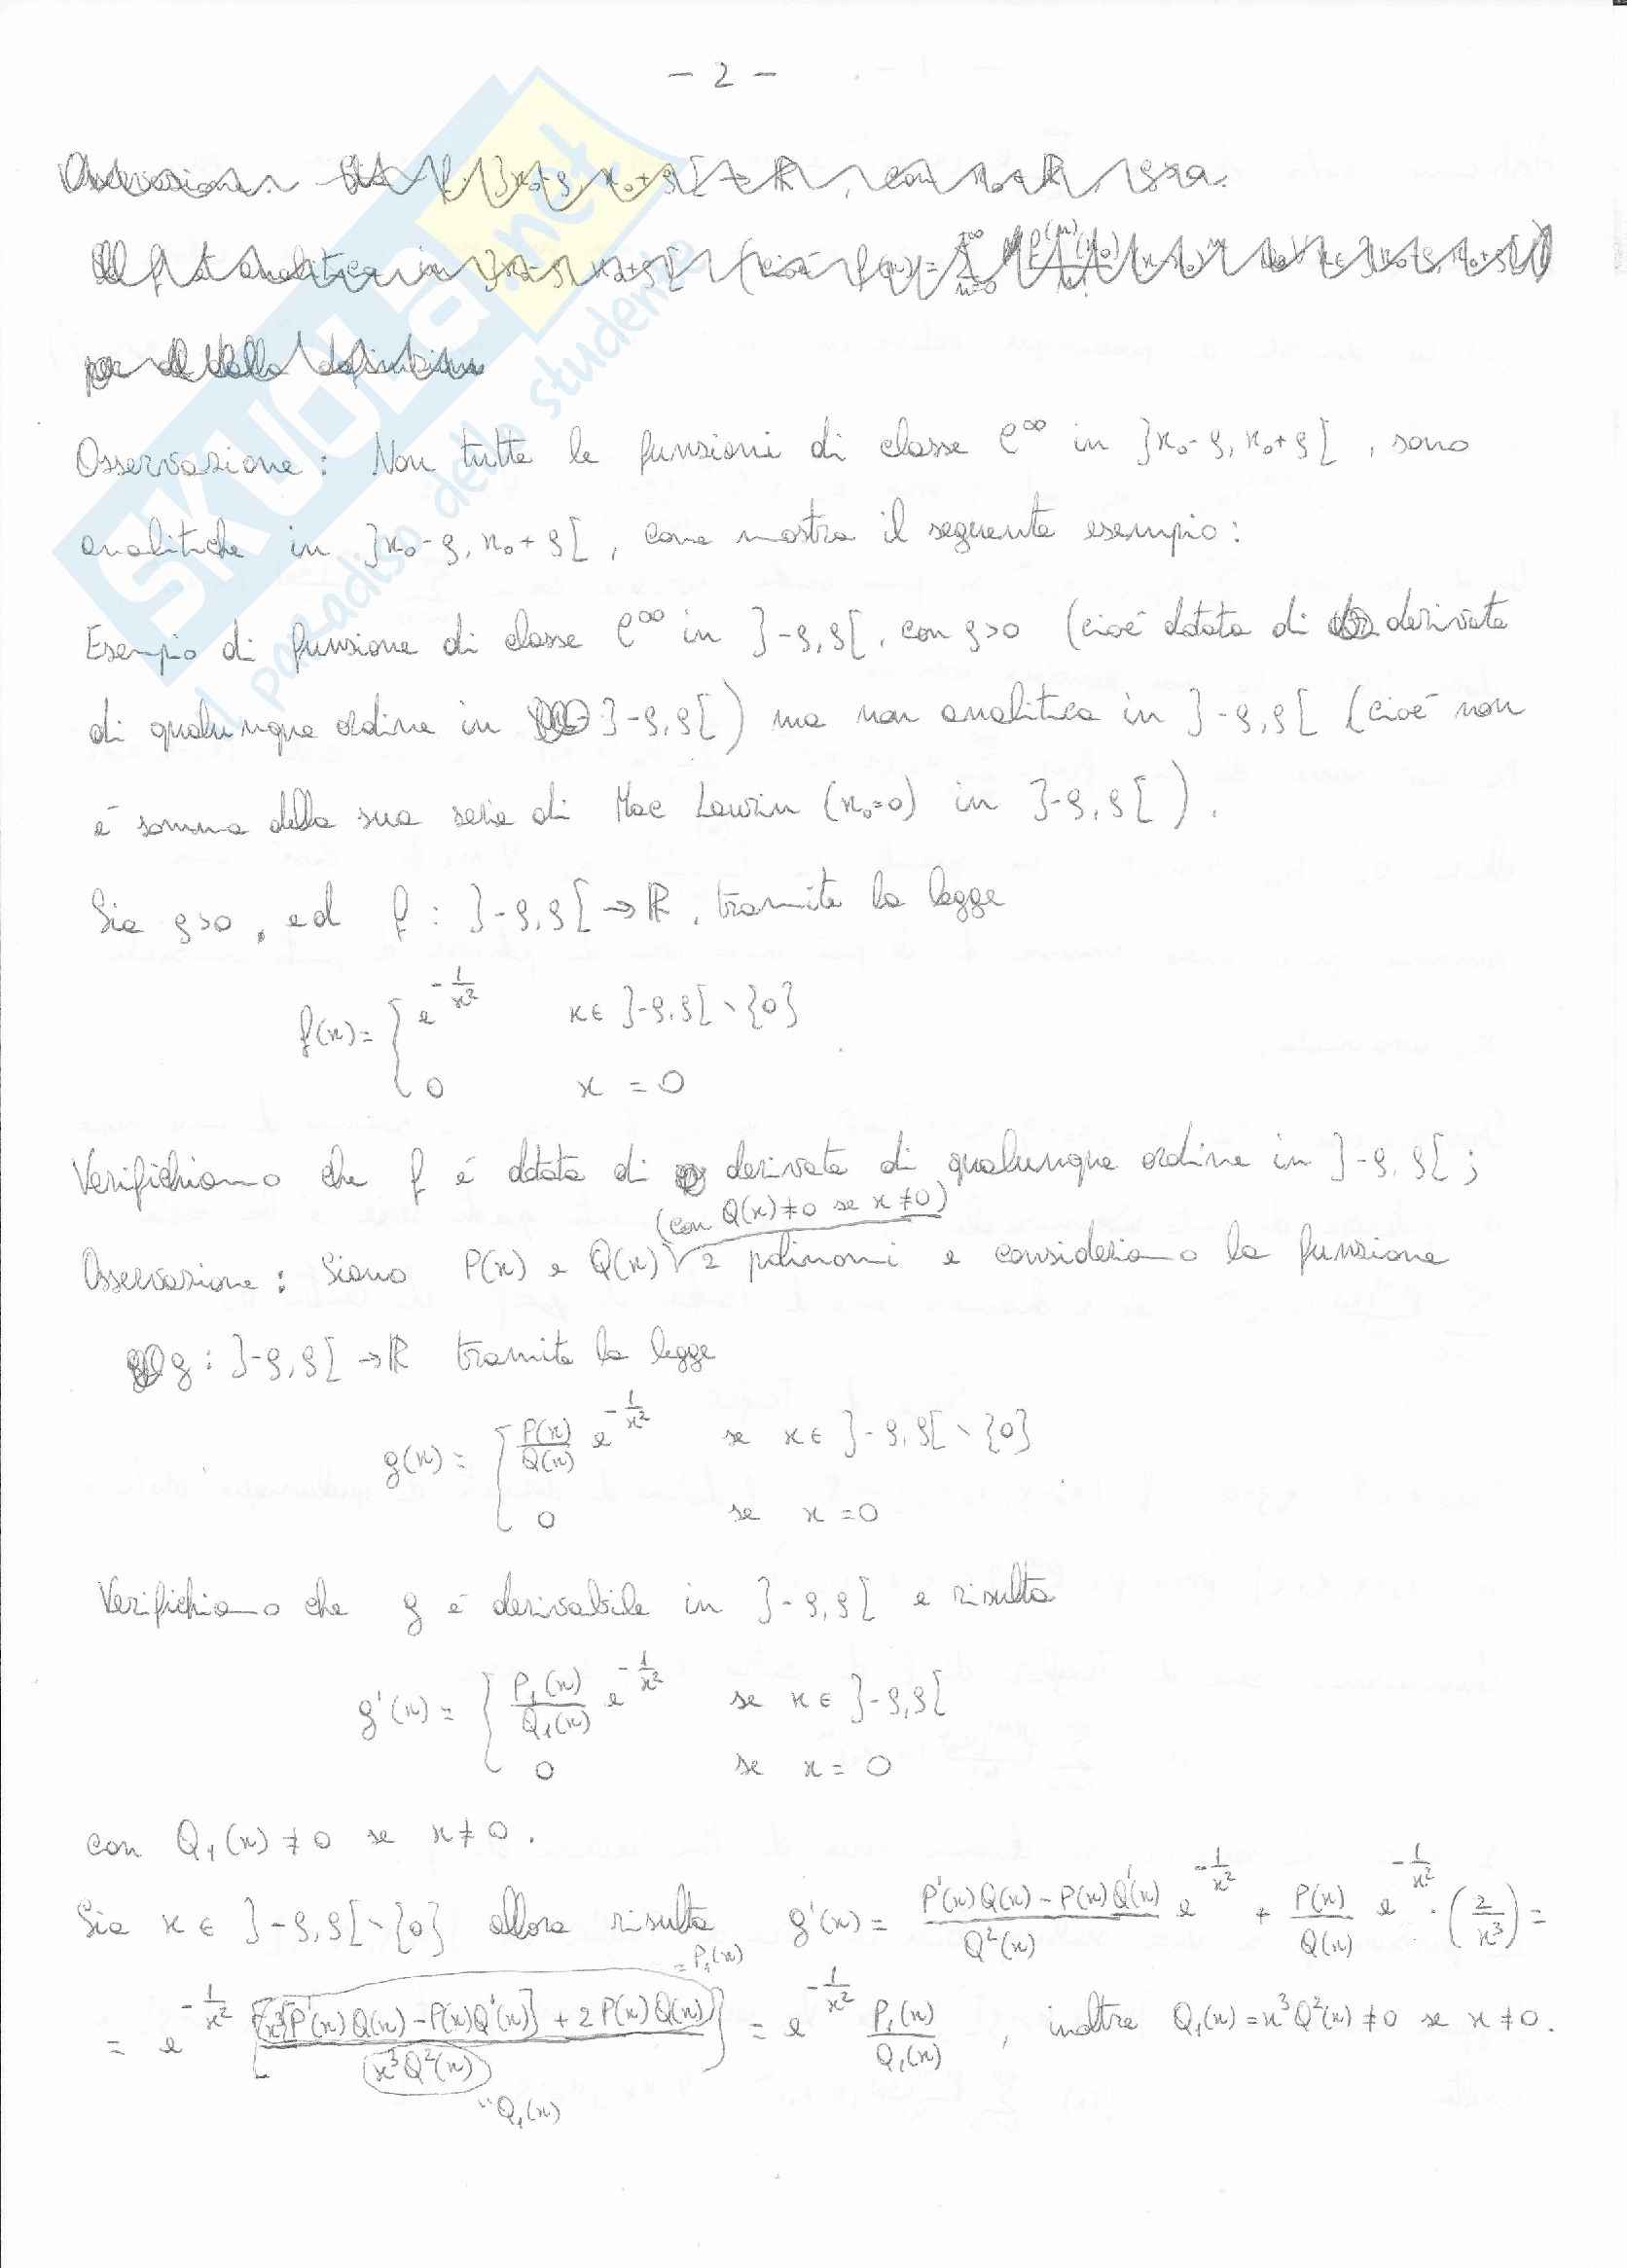 - 2 -
Osservazione: Non tutte le funzioni di classe C^∞ in ]x₀-ρ, x₀+ρ[, sono
analitiche in ]x₀-ρ, x₀+ρ[, come mostra il seguente esempio:
Esempio di funzione di classe C^∞ in ]-ρ,ρ[, con ρ>0 (cioè dotata di derivate
di qualunque ordine in ]-ρ,ρ[) ma non analitica in ]-ρ,ρ[ (cioè non
è somma della sua serie di Mac Laurin (x₀=0) in ]-ρ,ρ[).
Sia ρ>0, ed f : ]-ρ,ρ[ → ℝ, tramite la legge
f(x) = { e^{-1/x²} x ∈ ]-ρ,ρ[ \ {0}
0 x = 0
Verifichiamo che f è dotata di derivate di qualunque ordine in ]-ρ,ρ[;
(con Q(x)≠0 se x≠0)
Osservazione: Siano P(x) e Q(x) 2 polinomi e consideriamo la funzione
g : ]-ρ,ρ[ → ℝ tramite la legge
g(x) = { P(x)/Q(x) e^{-1/x²} se x ∈ ]-ρ,ρ[ \ {0}
0 se x = 0
Verifichiamo che g è derivabile in ]-ρ,ρ[ e risulta
g'(x) = { P₁(x)/Q₁(x) e^{-1/x²} se x ∈ ]-ρ,ρ[
0 se x = 0
con Q₁(x) ≠ 0 se x ≠ 0.
Sia x ∈ ]-ρ,ρ[ \ {0} allora risulta g'(x) = (P'(x)Q(x) - P(x)Q'(x))/Q²(x) e^{-1/x²} + P(x)/Q(x) e^{-1/x²} · (2/x³) =
= P₁(x)
= e^{-1/x²} [(x³[P'(x)Q(x) - P(x)Q'(x)] + 2P(x)Q(x))/(x³Q²(x))] = e^{-1/x²} P₁(x)/Q₁(x), inoltre Q₁(x) = x³Q²(x) ≠ 0 se x ≠ 0.
" Q₁(x)
SKUOLA.net
il paradiso dello studente